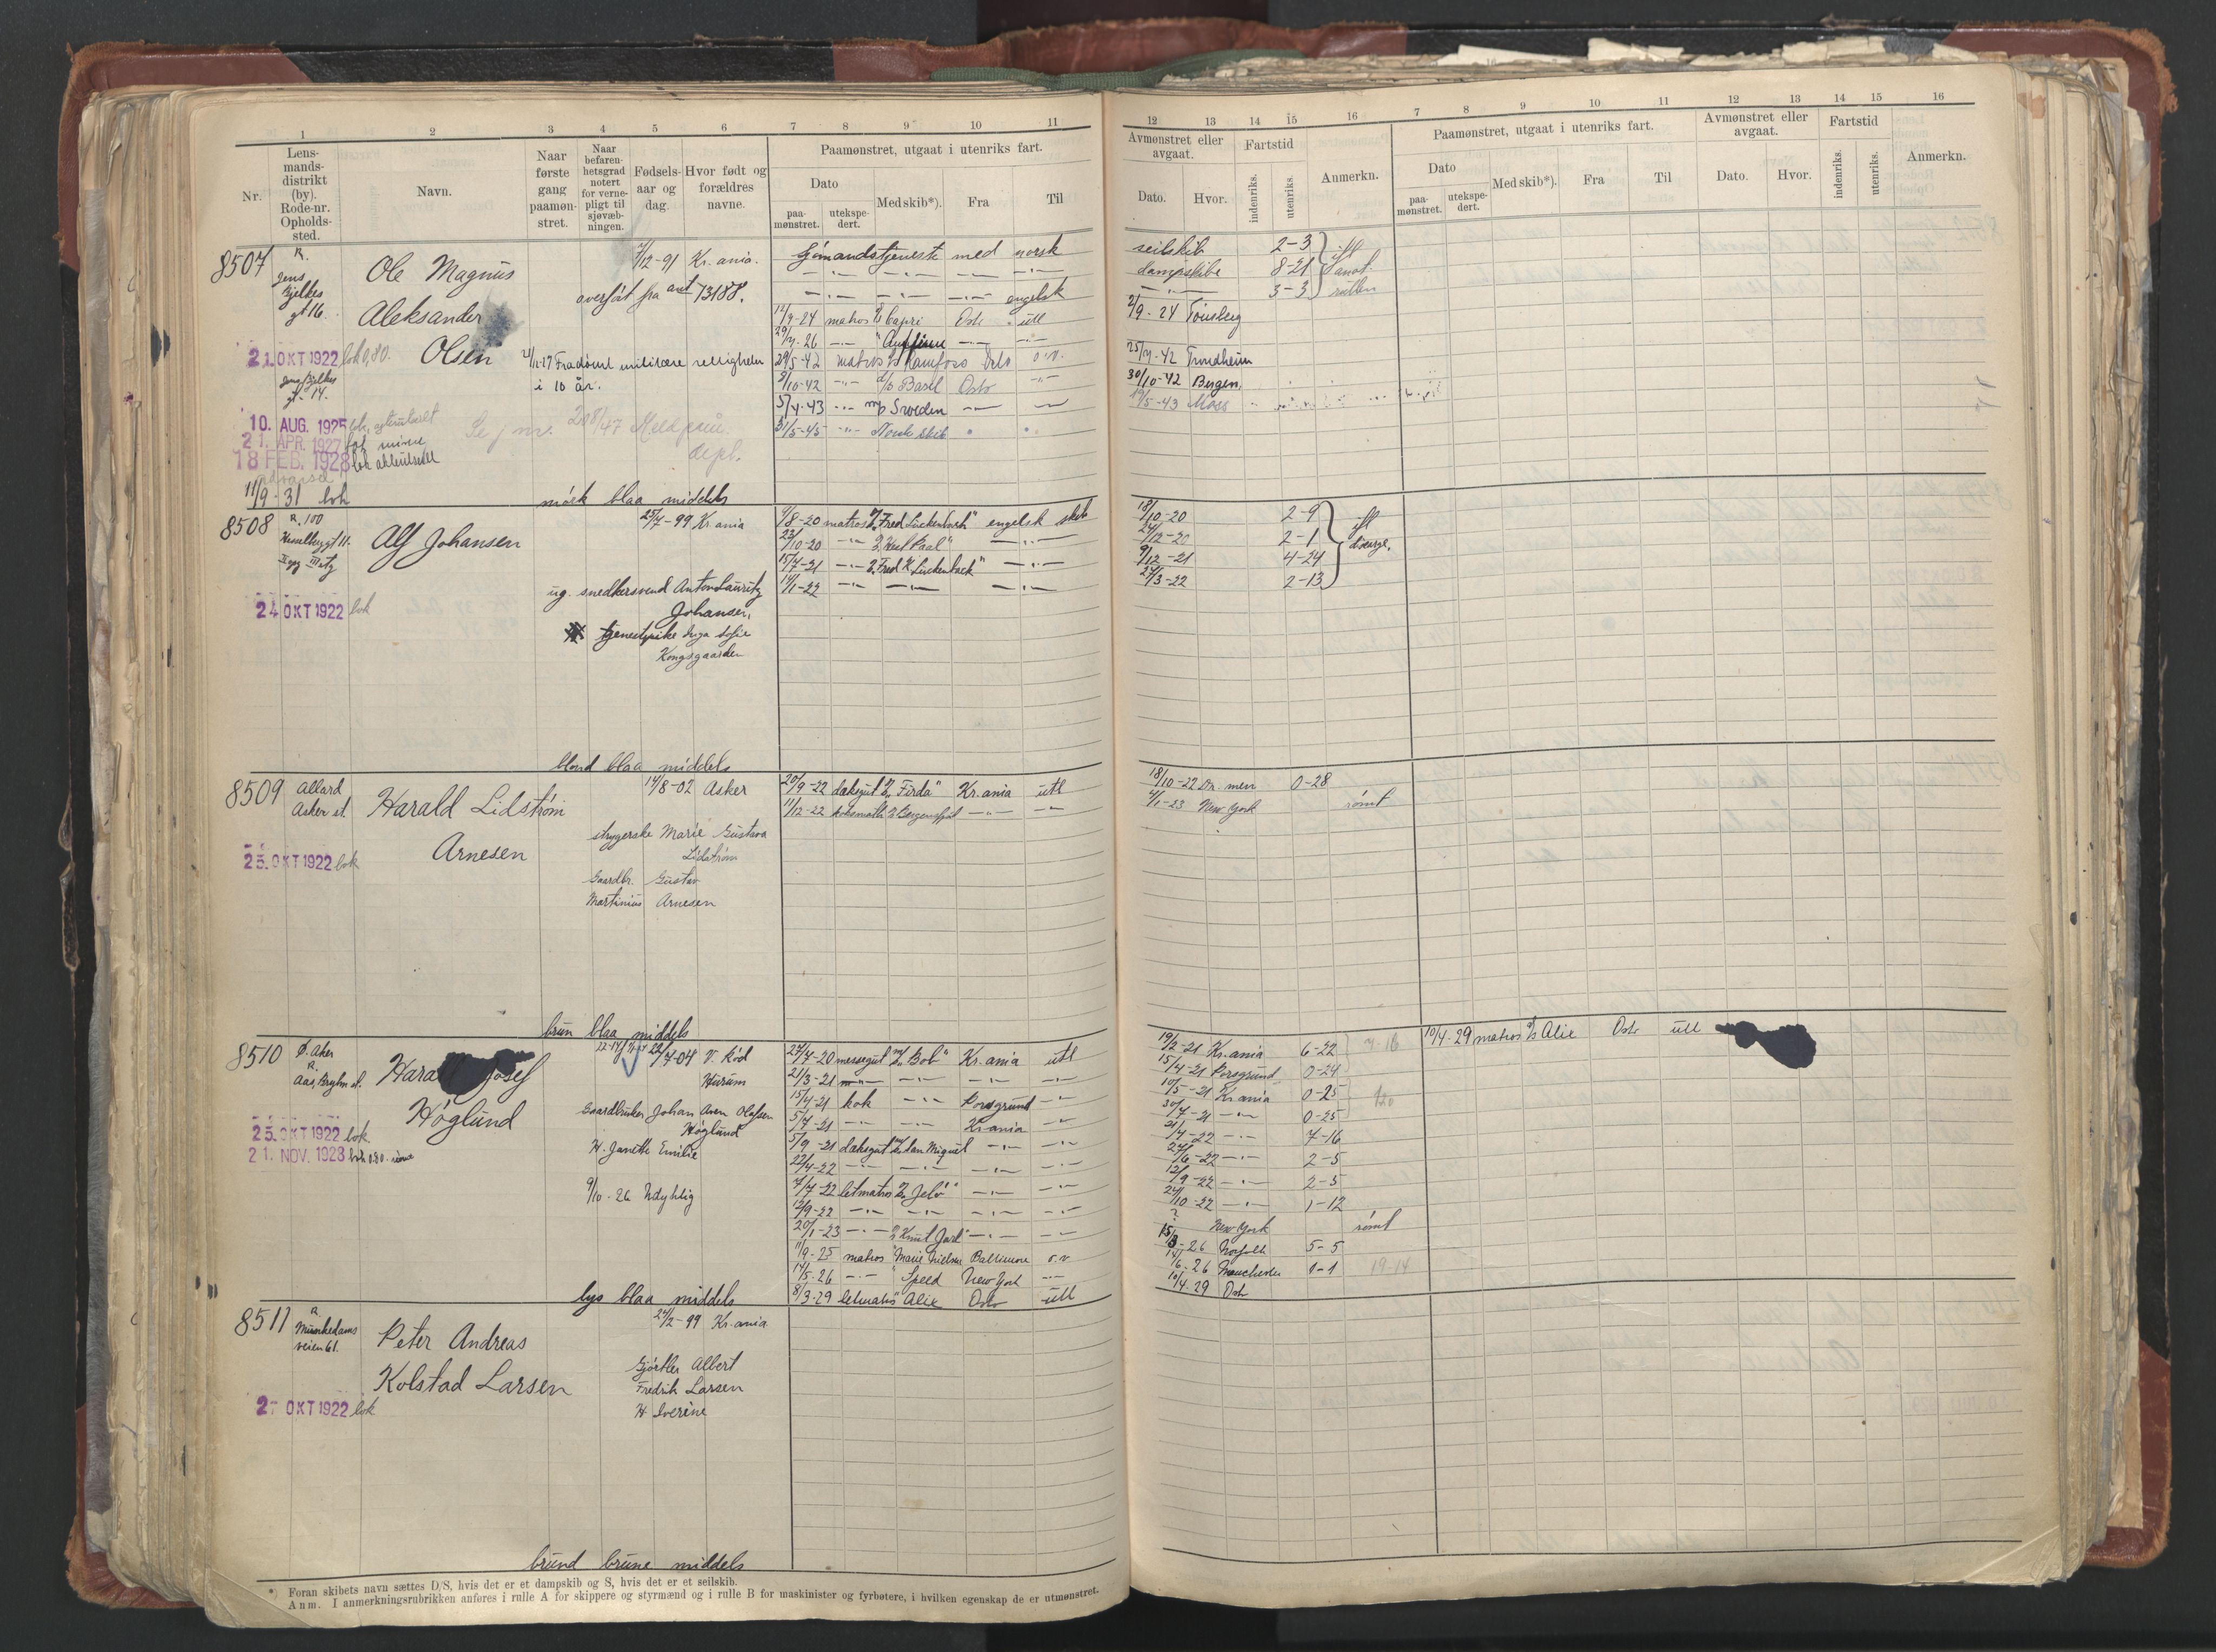 1 2 3 4 5 6 7 8 9 10 11
Nr. Lensmandsdistrikt (by). Rode-nr. Opholds-sted. Navn. Naar første gang paamønstret. Naar befarenhetsgrad notert for vernepligt til sjøvæbningen. Fødselsaar og dag. Hvor født og forældres navne. Paamønstret, utgaat i utenriks fart.
Dato Med skib*). Fra Til
paamønstret. utekspedert.
8507 R. Jens Bjelkes gt 16. Ole Magnus 7/12-91 Kr.ania. Sjømandstjeneste med norsk
overført fra ant 73188. —·— —·— —·— engelsk
Aleksander 12/7-24 matros Capri Oslo utl
Olsen 29/7-26 —·—
21. OKT 1922 bok 0,80. Fradømt militære rettigheter i 10 år. 29/5-42 matros Ramfoss Oslo o.v.
Jens Bjelkes gt. 14. 9/10-42 —"— Basel Oslo —"—
10. AUG. 1925 3/4-43 —"— m/s Sweden —"— —"—
21. APR. 1927 31/5-45 —"— Norsk skib
18 FEB. 1928
Se j nr. 208/47
11/9-31 bok mørk blaa middels
8508 R. 100 Alf Johansen 25/7-99 Kr.ania 9/8-20 matros "Fred Luckenbach" engelsk skib
23/10-20 —"— —"—
15/7-21 —"— —"—
ug. snedkersvend Anton Lauritz Johansen, 14/1-22 —"— —"— —"—
24 OKT 1922 bok tjenestepike Inga Sofie Kongsgaarden
blond blaa middels
8509 Allard Asker st. Harald Lidstrøm 14/8-02 Asker 20/9-22 daksgut "Firda" Kr.ania utl
11/12-22 koksmath Bergensfjord —"— —"—
Arnesen strygerske Marie Gustava Lidstrøm
25. OKT 1922 bok Gaardbr. Gustav
Martinius Arnesen
brun blaa middels
8510 Ø. Aker R. Aas, Bryhn st. Harald Josef 22/7-04 V. Rød Hurum 27/7-20 messegut m/s "Bob" Kr.ania utl
Høglund 21/3-21 —"— —"— —"— —"—
15/4-21 kok —"— Porsgrund —"—
Gaardbruker Johan Aron Olafsen Høglund 5/7-21 —"— —"— Kr.ania —"—
25. OKT 1922 bok 5/9-21 daksgut San Miguel —"— —"—
H. Janette Emilie 22/4-22 —"— —"— —"— —"—
21. NOV. 1928 7/7-22 letmatros "Jelø" —"— —"—
9/10-26 Udyktig 12/9-22 —"— —"— —"— —"—
20/1-23 —"— "Knut Jarl" —"— —"—
11/9-25 matros "Marie Nielsen Baltimore o.v.
14/5-26 —"— " Speed New York —"—
lys blaa middels 8/3-29 letmatros " Alix Oslo utl
8511 R. Munkedamsveien 61. Peter Andreas 24/2-99 Kr.ania
Kolstad Larsen Gjørtler Albert
Fredrik Larsen
27 OKT 1922 bok H Severine
brund brune middels
*) Foran skibets navn sættes D/S, hvis det er et dampskib og S, hvis det er et seilskib.
Anm. I anmerkningsrubrikken anføres i rulle A for skippere og styrmænd og i rulle B for maskinister og fyrbøtere, i hvilken egenskap de er utmønstret.
12 13 14 15 16 7 8 9 10 11 12 13 14 15 16
Avmønstret eller avgaat. Fartstid Anmerkn. Paamønstret, utgaat i utenriks fart. Avmønstret eller avgaat. Fartstid Anmerkn.
Dato. Hvor. indenriks. utenriks. Dato paamønstret. utekspedert. Med skib*). Fra Til Dato. Hvor. indenriks. utenriks.
seilskib 2-3 ifl
dampskibe 8-21
—"— 3-3 rullen
2/9-24 Tønsberg
25/7-42 Trondheim
30/10-42 Bergen.
19/5-43 Moss
18/10-20 2-9 ifl
24/12-20 2-1
9/12-21 4-24
27/3-22 2-13
18/10-22 Dr.men 0-28
4/1-23 New York rømt
19/2-21 Kr.ania 6-22 10/4-29 matros Alix Oslo utl
15/4-21 Porsgrund 0-24
10/5-21 Kr.ania 0-25
30/7-21 —"— 0-25
21/4-22 —"— 7-16
27/6-22 —"— 2-5
12/9-22 —"— 2-5
24/10-22 —"— 1-12
? New York rømt
15/3-26 Norfolk 5-5
14/6-26 Manchester 1-1 19-14
10/4-29 Oslo